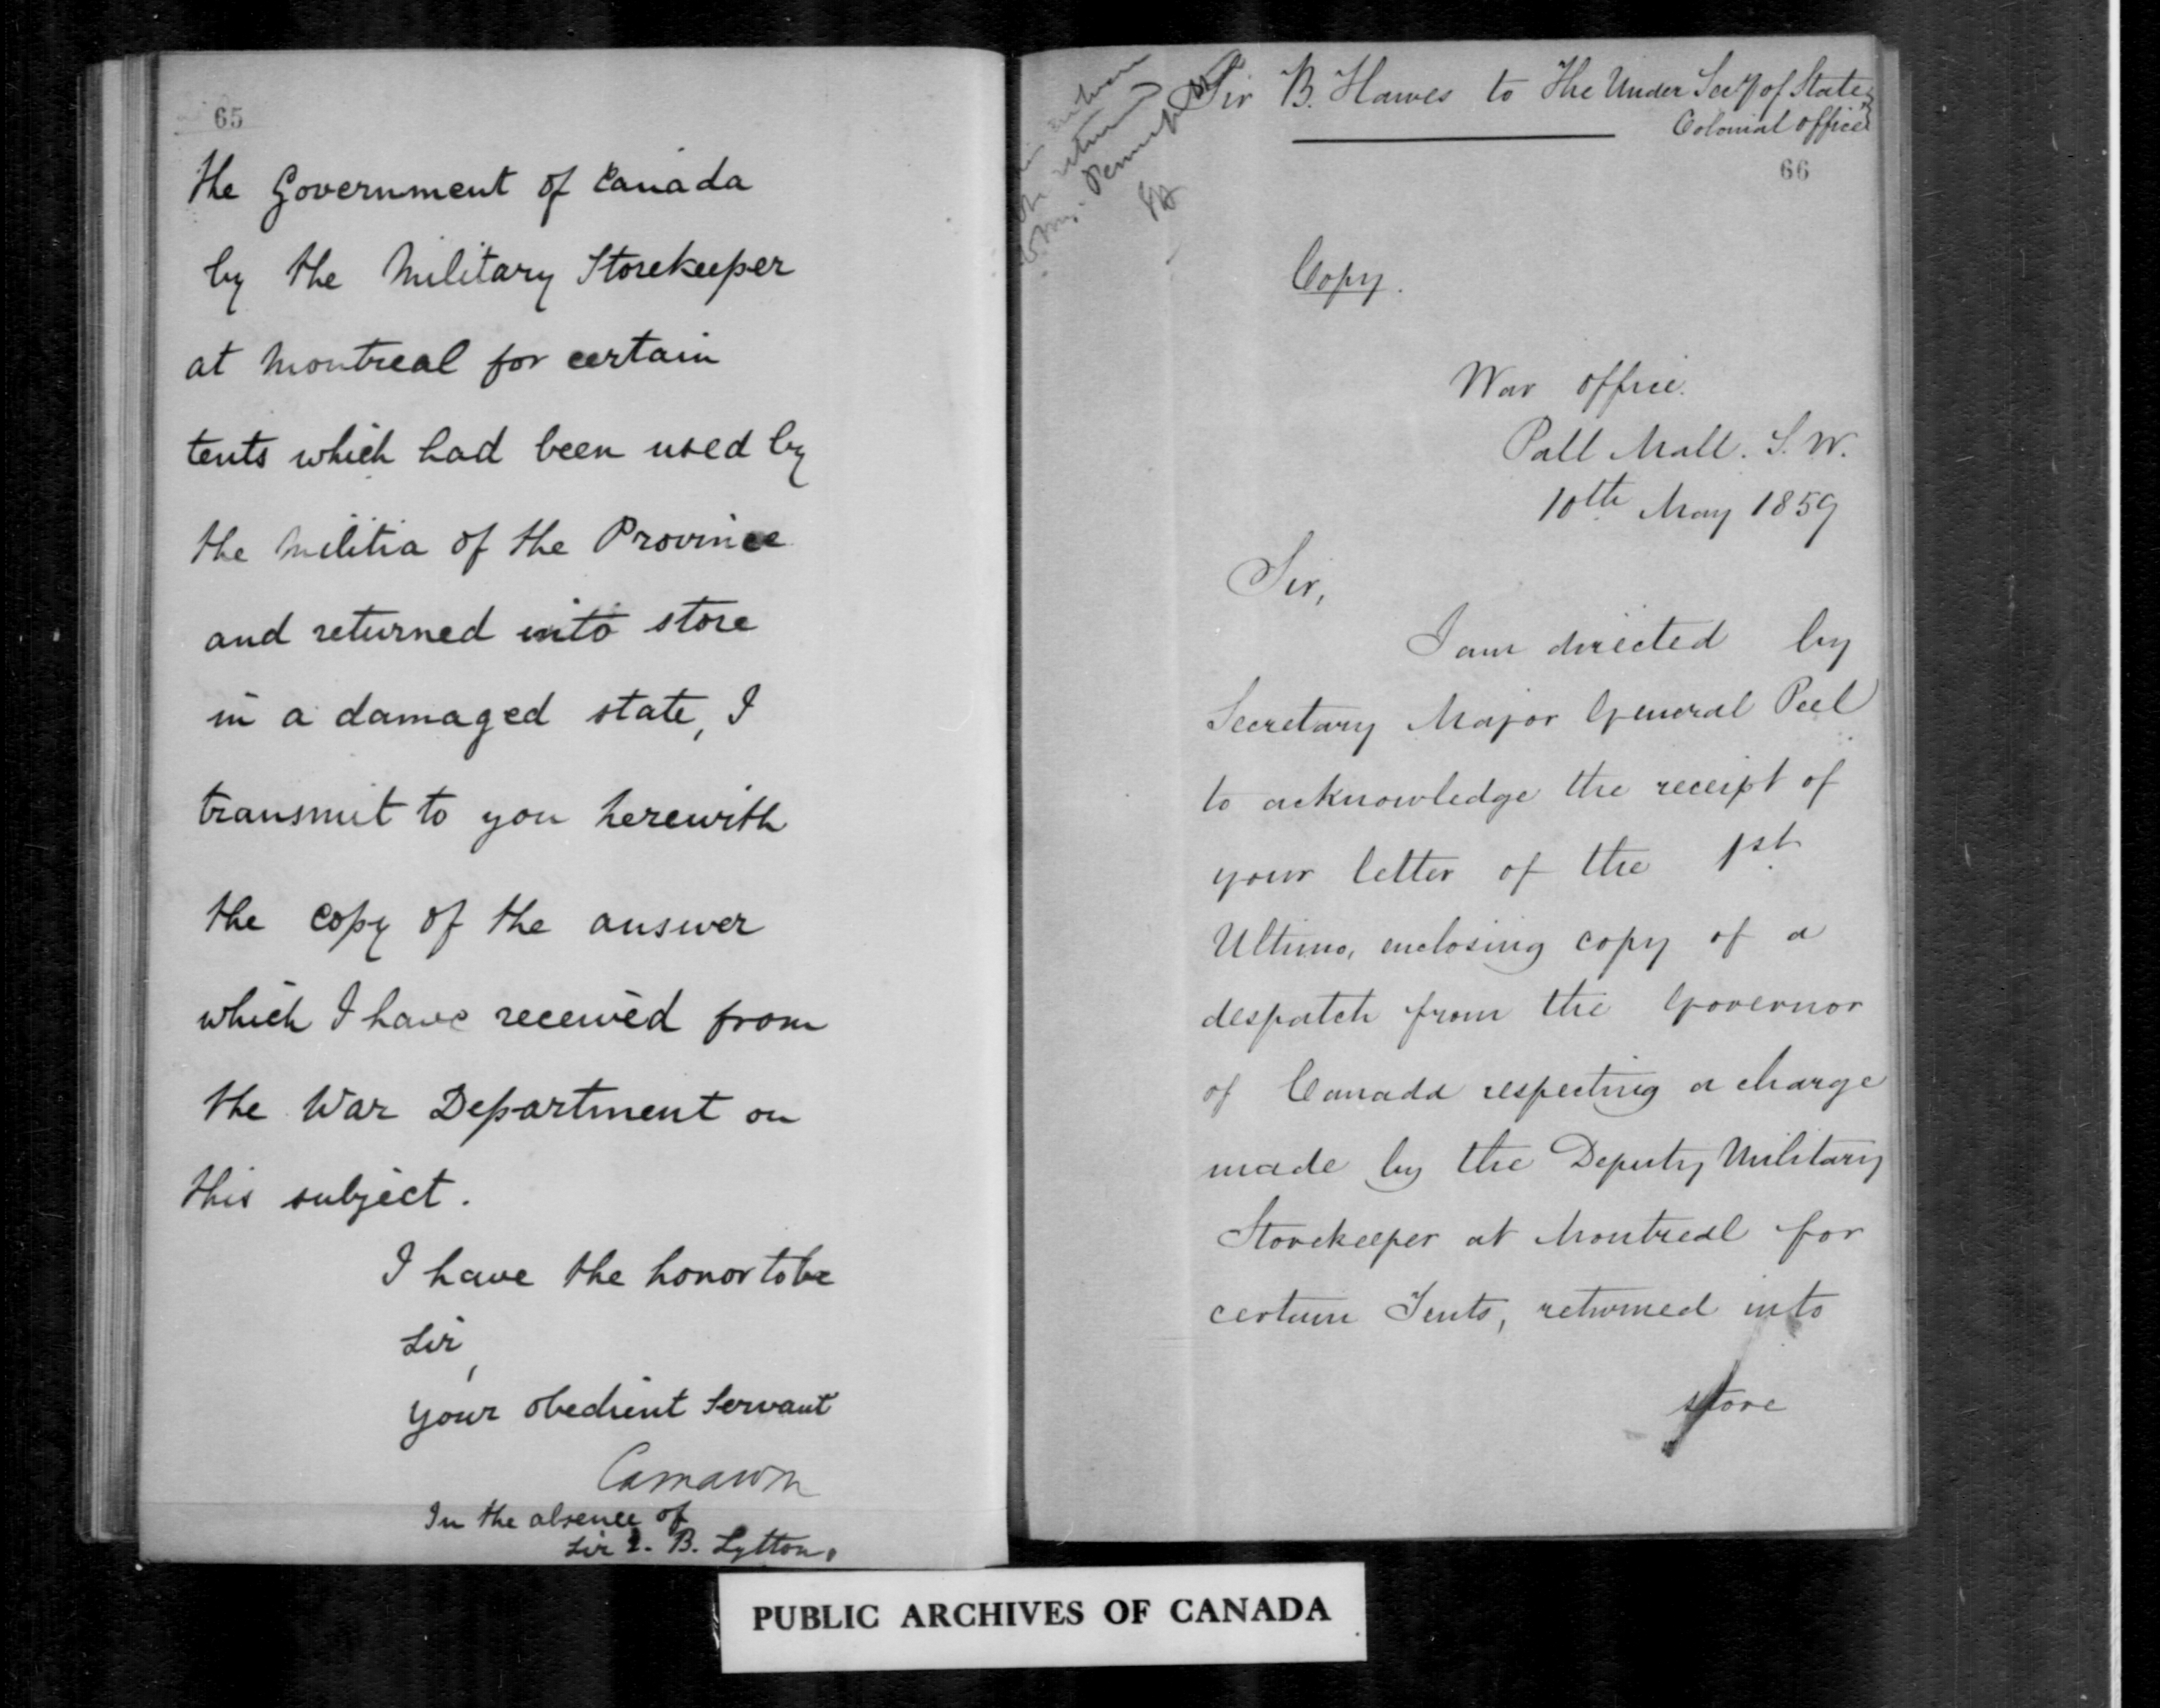 65
the Government of Canada
by the Military Storekeeper
at Montreal for certain
tents which had been used by
the Militia of the Province
and returned into store
in a damaged state, I
transmit to you herewith
the copy of the answer
which I have received from
the War Department on
this subject.
I have the honor to be
Sir,
your obedient servant
Carnarvon
In the absence of
Sir E. B. Lytton.
Sir B. Hawes to The Under Secy of State
Colonial Office
66
Copy.
War Office.
Pall Mall. S.W.
10th May 1859
Sir,
I am directed by
Secretary Major General Peel
to acknowledge the receipt of
your letter of the 1st
Ultimo, enclosing copy of a
despatch from the Governor
of Canada respecting a charge
made by the Deputy Military
Storekeeper at Montreal for
certain Tents, returned into
store
PUBLIC ARCHIVES OF CANADA